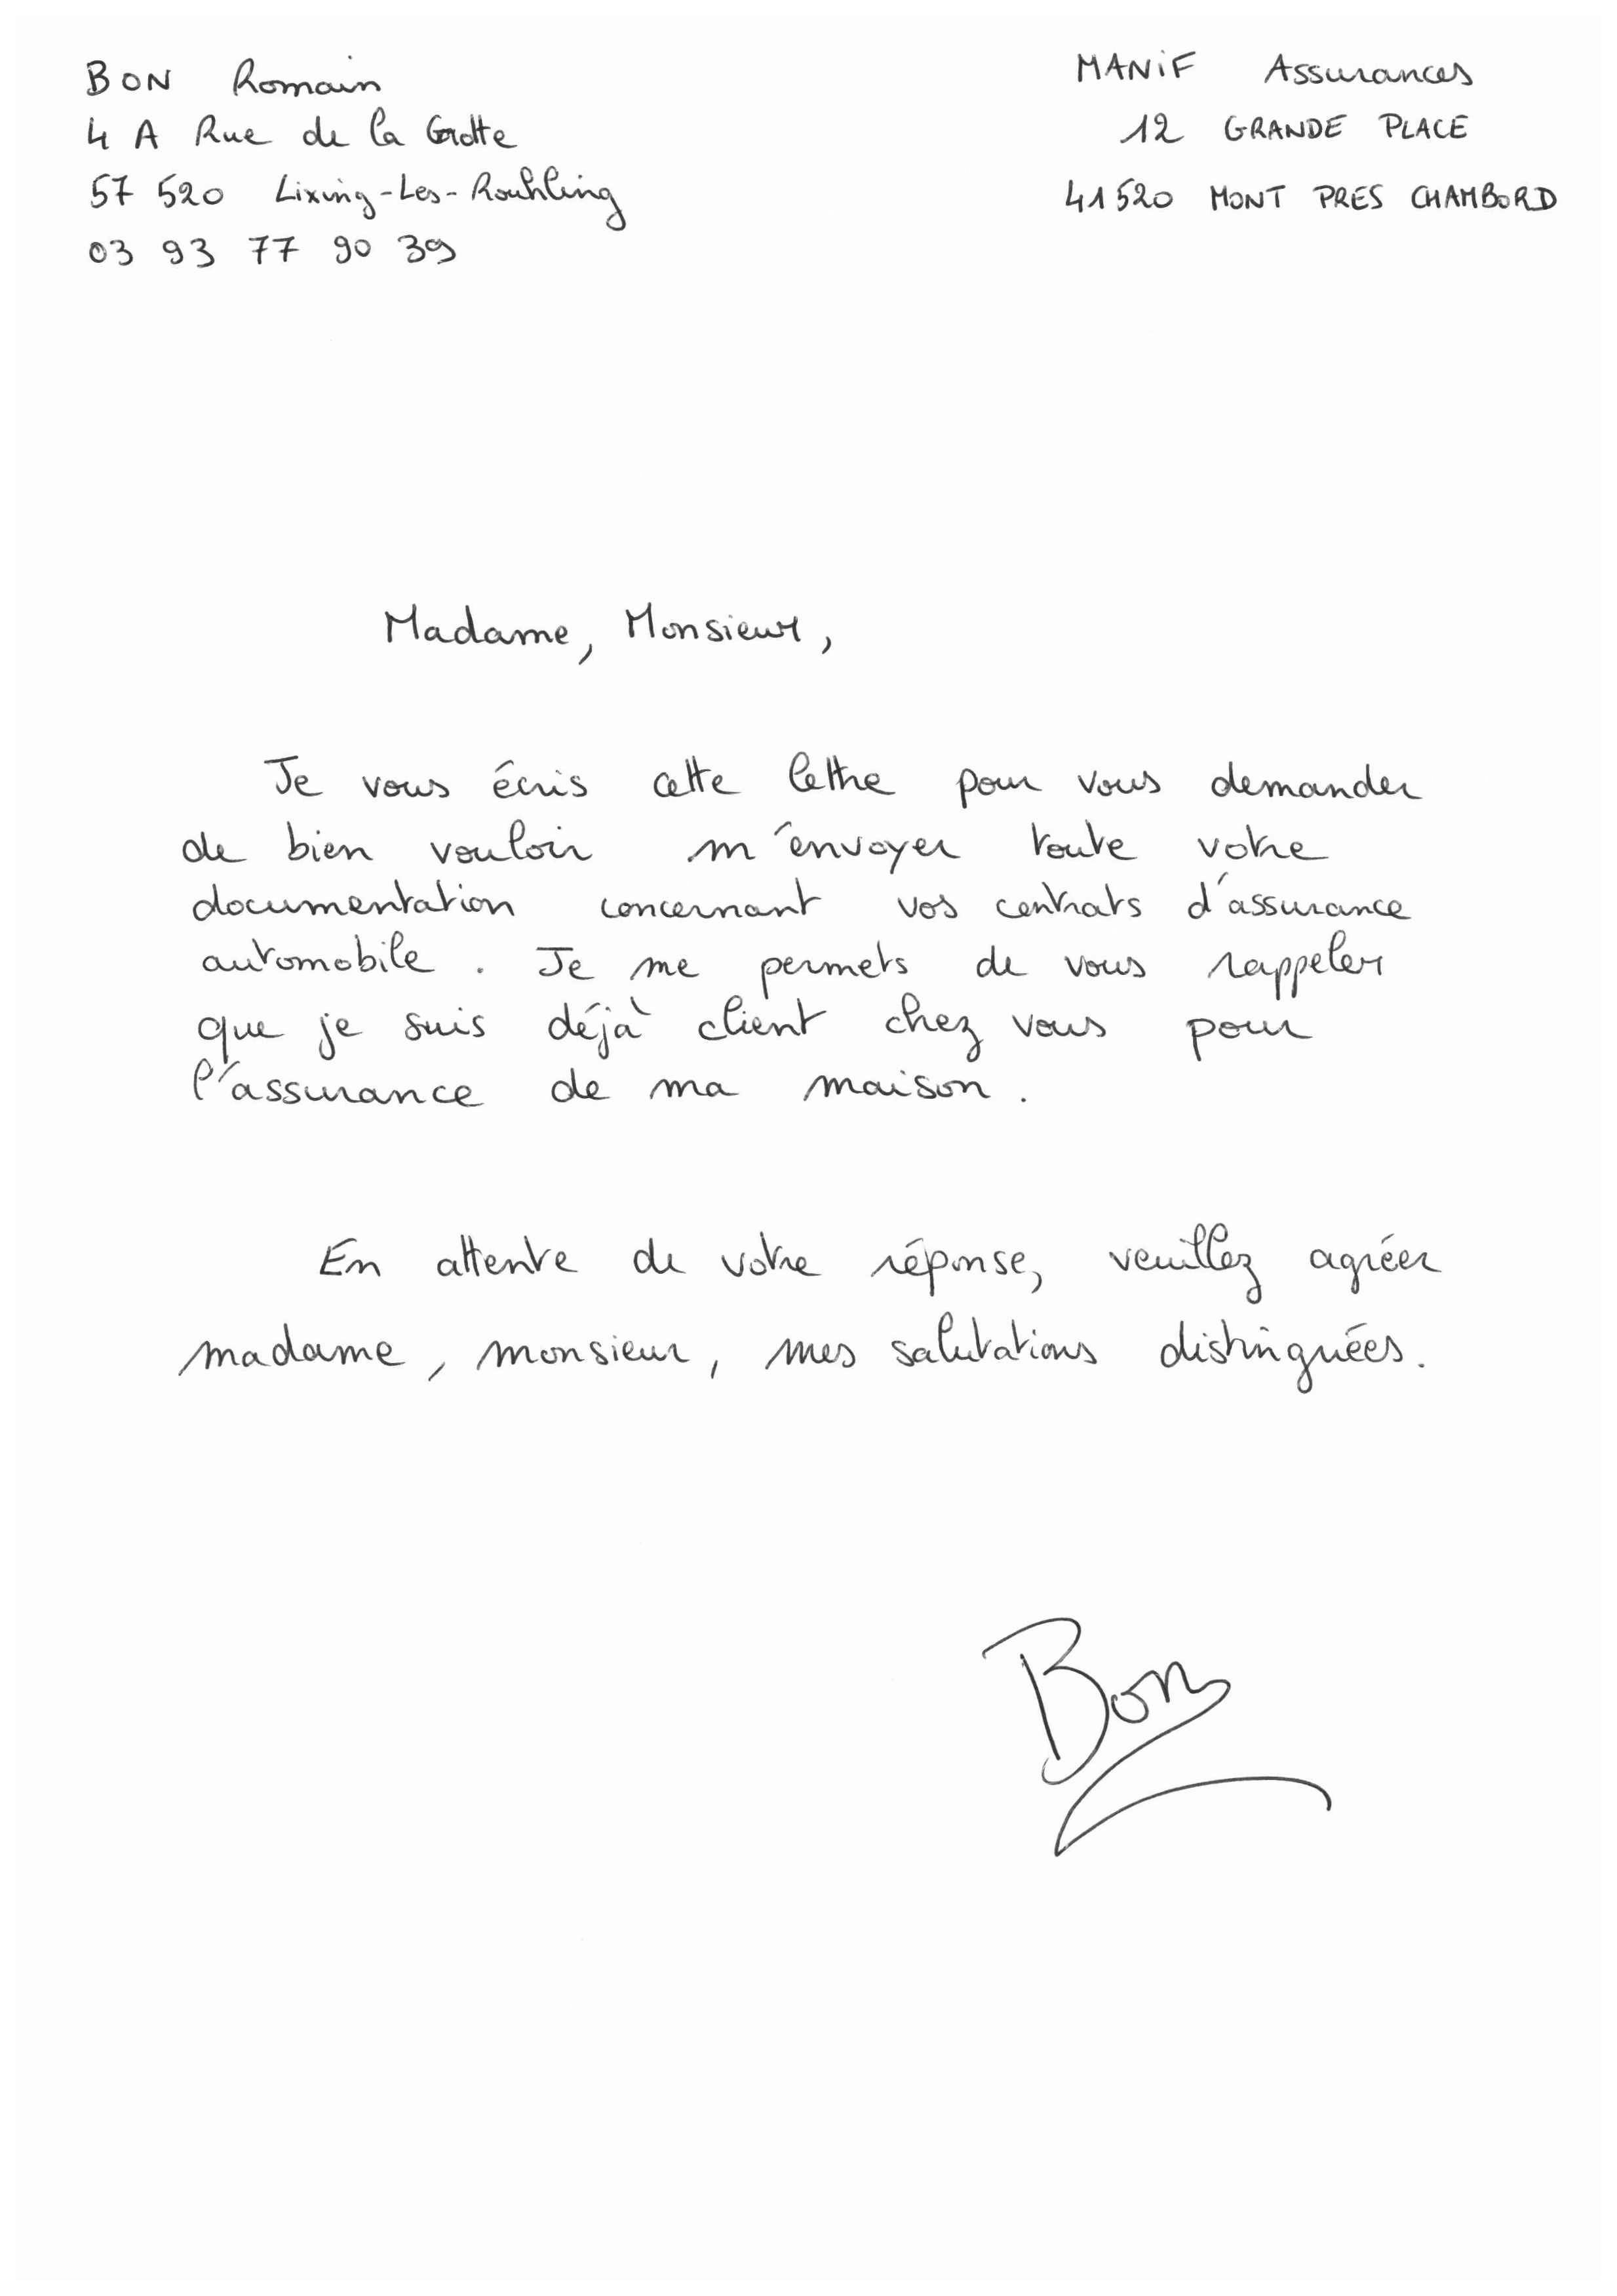 BON Romain
4 A Rue de la Grotte
57 520 Lixing-Les-Rouhling
03 93 77 90 39
MANiF Assurances
12 GRANDE PLACE
41520 MONT PRES CHAMBORD
Madame, Monsieur,
Je vous écris cette lettre pour vous demander
de bien vouloir m'envoyer toute votre
documentation concernant vos contrats d'assurance
automobile. Je me permets de vous rappeler
que je suis déjà client chez vous pour
l'assurance de ma maison.
En attente de votre réponse, veuillez agréer
madame, monsieur, mes salutations distinguées.
Bon